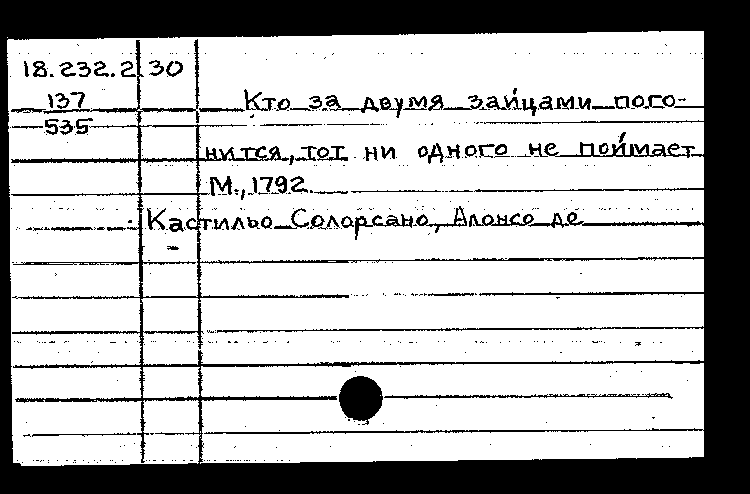 18.232.2.30
137
535
Кто за двумя зайцами пого-
нится, тот ни одного не поймает
М., 1792.
Кастильо Солорсано, Алонсо де